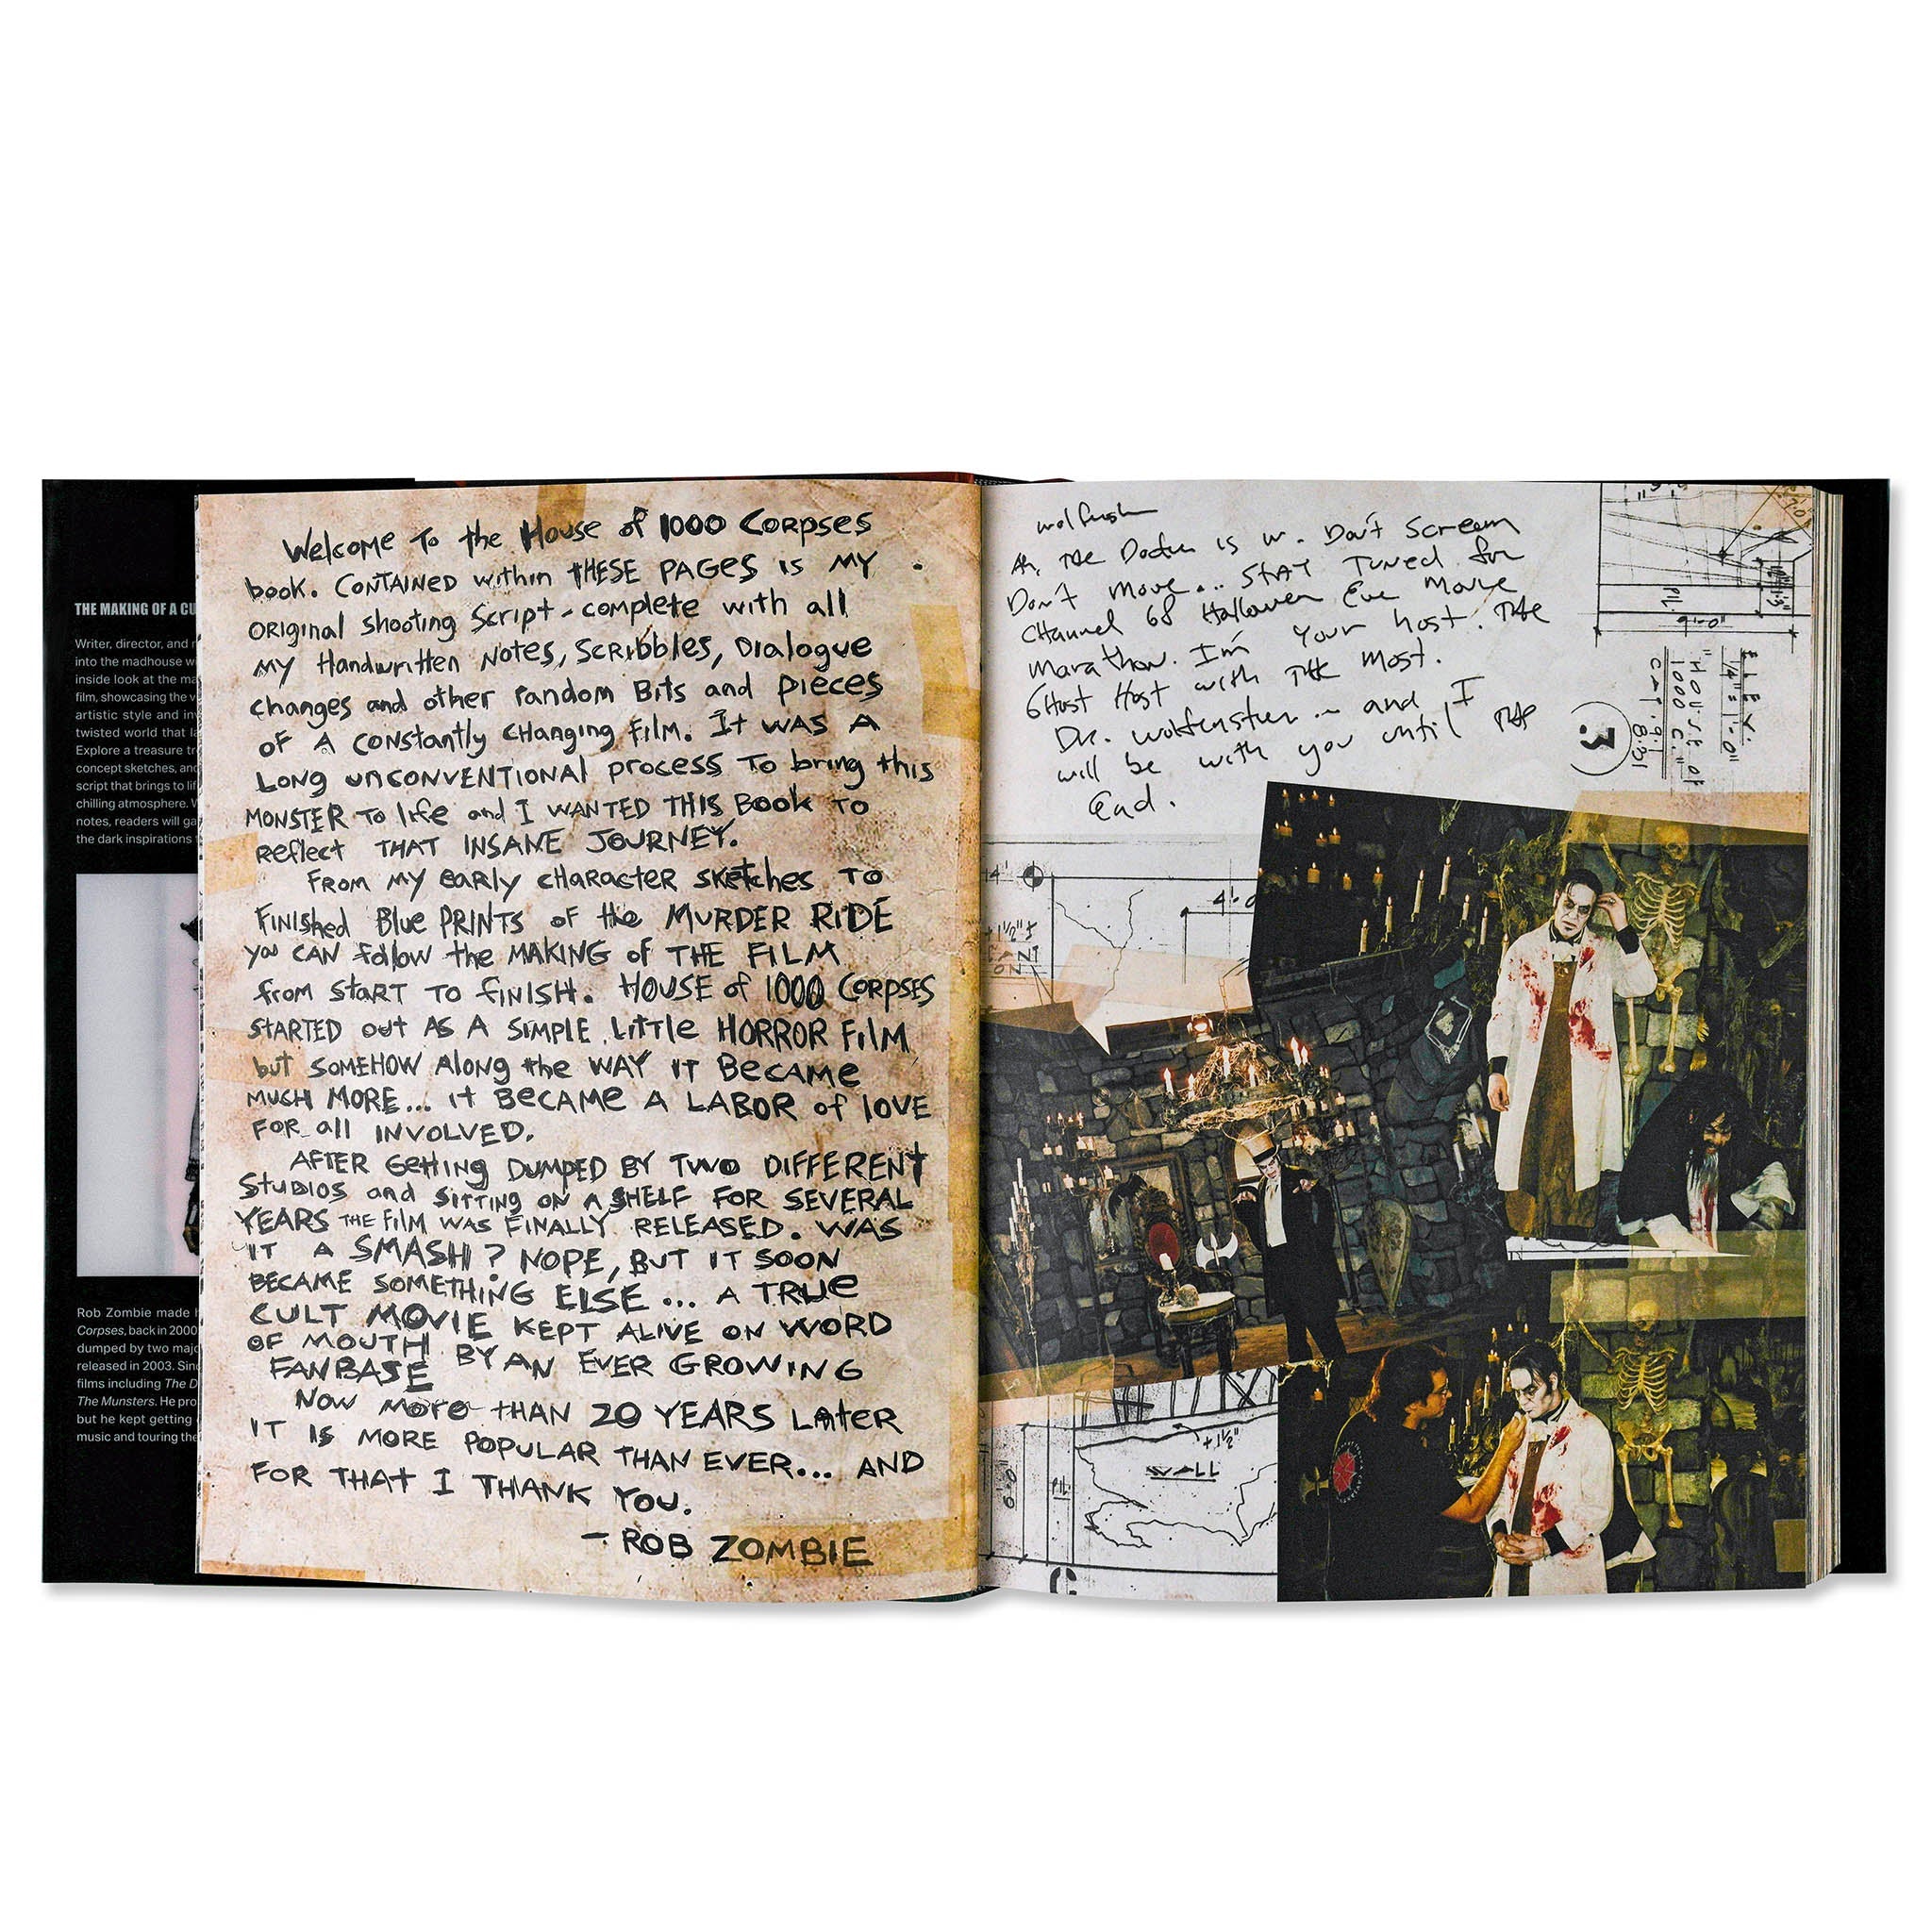 THE MAKING OF A CU
Writer, director, and
into the madhouse w
inside look at the ma
film, showcasing the v
artistic style and in
twisted world that la
Explore a treasure tr
concept sketches, and
script that brings to lif
chilling atmosphere. W
notes, readers will ga
the dark inspirations
Rob Zombie made h
Corpses, back in 2000
dumped by two majo
released in 2003. Sinc
films including The D
The Munsters. He pro
but he kept getting
music and touring the
Welcome To the House of 1000 Corpses
book. CONTAINED within THESE PAGES is MY
ORIGINAL shooting Script - complete with all
MY Handwritten Notes, Scribbles, Dialogue
changes and other random Bits and pieces
OF A CONSTANTLY CHANGING FILM. It WAS A
LONG UNCONVENTIONAL process TO bring this
MONSTER To life and I WANTED THIS BOOK TO
Reflect THAT INSANE JOURNEY.
FROM MY early CHARACTER SKETCHES TO
FINISHED Blue PRINTS OF the MURDER RIDE
YOU CAN follow the MAKING of THE FILM
from START TO FINISH. HOUSE of 1000 CORPSES
STARTED out AS A SIMPLE LITTLE HORROR FILM
but SOMEHOW Along the WAY IT BECAME
MUCH MORE... it BECAME A LABOR of LOVE
FOR all INVOLVED.
AFTER Getting DUMPED BY TWO DIFFERENT
STUDIOS and SITTING ON A SHELF FOR SEVERAL
YEARS THE FILM WAS FINALLY RELEASED. WAS
IT A SMASH? NOPE, BUT IT SOON
BECAME SOMETHING ELSE... A TRUE
CULT MOVIE KEPT ALIVE ON WORD
OF MOUTH BY AN EVER GROWING
FANBASE
NOW MORE THAN 20 YEARS LATER
IT IS MORE POPULAR THAN EVER... AND
FOR THAT I THANK YOU.
- ROB ZOMBIE
Ah, THE Doctor is in. Don't Scream
Don't move... STAY Tuned for
CHannel 68 Halloween Eve Movie
Marathon. I'm Your host. THE
GHost Host with THE Most.
Dr. Wolfenstein... and I
will be with you until THE
End.
ELEV.
1/4" = 1'-0"
"HOUSE of
1000 C."
3
14'
4'-0
+1 1/2"
PL.
9'-0"
WALL
+1 1/2"
C